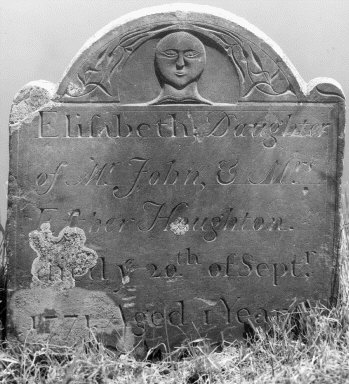 Elisabeth, Daughter
of Mr. John, & Mrs.
Esther Houghton.
died ye 20th of Septr.
1771. Aged 1 Year